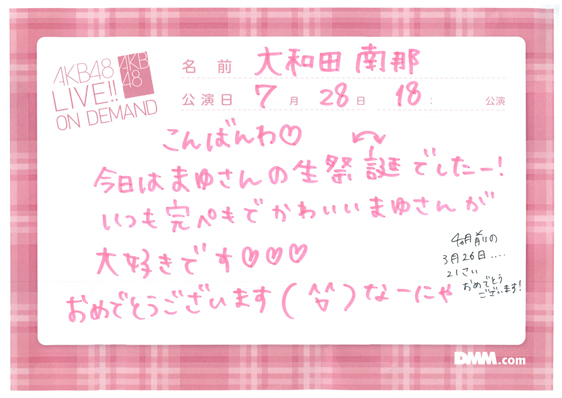 AKB48
LIVE!!
ON DEMAND
AKB
48
名前 大和田 南那
公演日 7月 28日 18: 公演
こんばんわ♡
今日はまゆさんの生祭誕でしたー!
いつも完ぺきでかわいいまゆさんが
大好きです♡♡♡
おめでとうございます(^^)なーにゃ
4ヵ月前の
3月26日....
21さい
おめでとう
ございます!
DMM.com